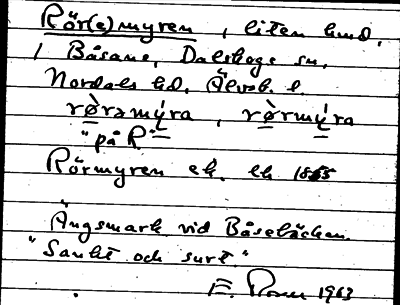 Rör(e)myren, liten hmd.
i Båsane, Dalskogs sn,
Nordals hd. Älvsb. l.
rø̀rəmýra, rø̀rmýra
"på R"
Rörmyren ek. lk 1865
Ängsmark vid Båsebäcken.
"Sankt och surt."
E. 1963